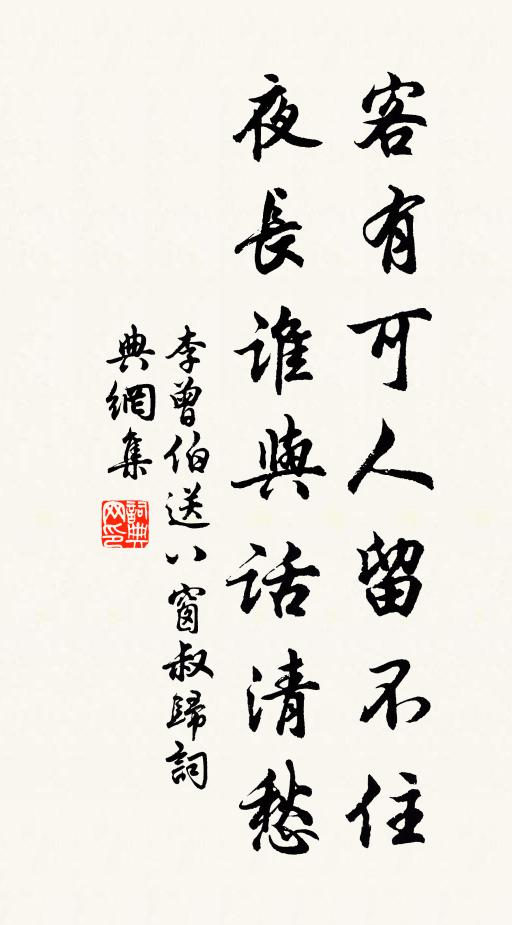 客有可人留不住
夜長誰與話清愁
李曾伯送八窗叔歸詞
典網集
詞典
网印